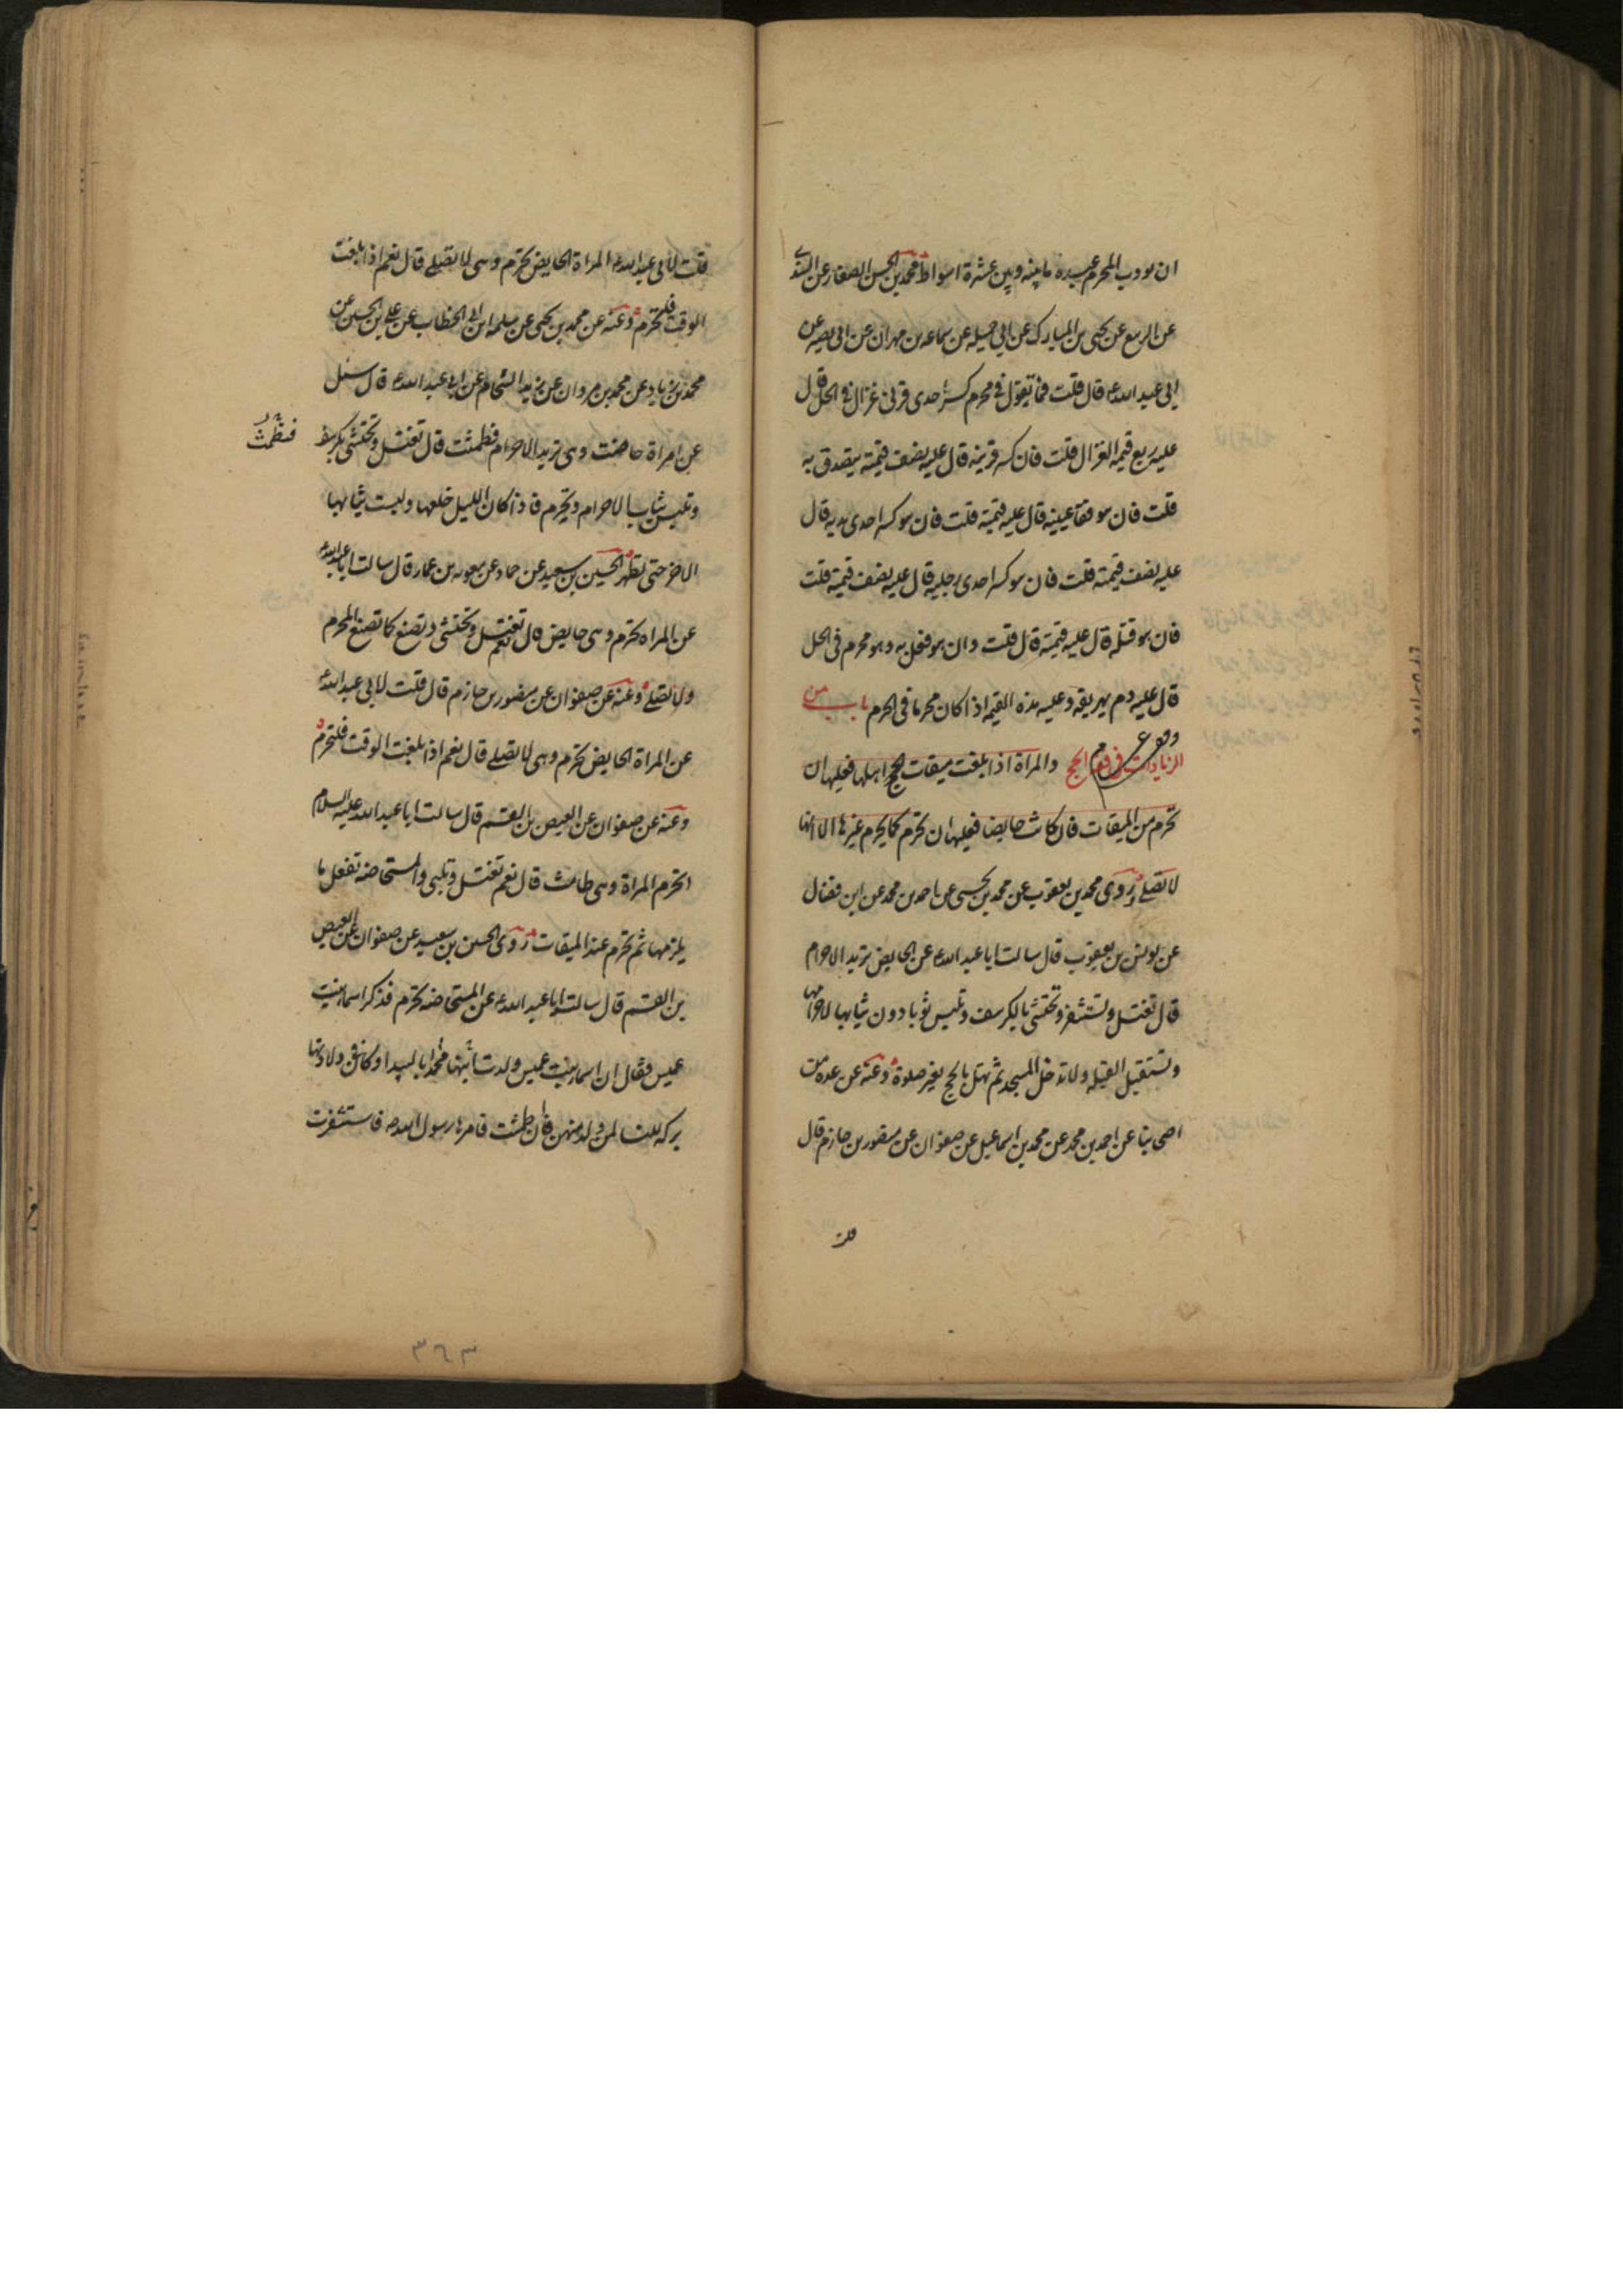 ان يودب المحرم عبده ما بينه وبين عشرة اسواط محمد بن الحسن الصفار عن السندي
عن الربيع عن يحيى بن المبارك عن ابي جميله عن سماعه بن مهران عن ابي بصير عن
ابي عبد الله ع قال قلت فما تقول في محرم كسر احدى قرني غزال في الحل قال
عليه ربع قيمه الغزال قلت فان كسر قرنيه قال عليه نصف قيمته يتصدق به
قلت فان هو فقا عينيه قال عليه قيمته قلت فان هو كسر احدى يديه قال
عليه نصف قيمته قلت فان هو كسر احدى رجليه قال عليه نصف قيمته قلت
فان هو قتله قال عليه قيمته قال قلت وان هو فعل به وهو محرم في الحل
قال عليه دم يهريقه وعليه هذه القيمه اذا كان محرما في الحرم باب من
الزيادات في فقه الحج والمراة اذا بلغت ميقات اهلها فعليها ان
تحرم من الميقات فان كانت حايضا فعليها ان تحرم كما يحرم غيرها الا انها
لا تصلي روى محمد بن يعقوب عن محمد بن يحيى عن احمد بن محمد عن ابن فضال
عن يونس بن يعقوب قال سالت ابا عبد الله ع عن الحايض تريد الاحرام
قال تغتسل وتستثفر وتحتشي بالكرسف وتلبس ثوبا دون ثيابها لاحرامها
وتستقبل القبله ولا تدخل المسجد ثم تهل بالحج بغير صلوة وعنه عن عده من
اصحابنا عن احمد بن محمد عن محمد بن اسماعيل عن صفوان عن منصور بن حازم قال
قلت
قلت لابي عبد الله ع المراة الحايض تحرم وهي لا تصلي قال نعم اذا بلغت
الوقت فلتحرم وعنه عن محمد بن يحيى عن سلمه ابن الخطاب عن علي بن الحسين عن
محمد بن زياد عن محمد بن مروان عن زيد الشحام عن ابي عبد الله ع قال سئل
عن امراة حاضت وهي تريد الاحرام فطمثت قال تغتسل وتحتشي بكرسف
فتطمث
وتلبس ثياب الاحرام وتحرم فاذا كان الليل خلعها ولبست ثيابها
الاخر حتى تطهر الحسين بن سعيد عن حماد عن معويه بن عمار قال سالت ابا عبد الله ع
عن المراه تحرم وهي حايض قال نعم تغتسل وتحتشي وتصنع كما تصنع المحرم
ولا تصلي وعنه عن صفوان عن منصور بن حازم قال قلت لابي عبد الله ع
عن المراة الحايض تحرم وهي لا تصلي قال نعم اذا بلغت الوقت فلتحرم
وعنه عن صفوان عن العيص بن القسم قال سالت ابا عبد الله عليه السلام
اتحرم المراة وهي طامث قال نعم تغتسل وتلبي والمستحاضه تفعل ما
يلزمها ثم تحرم عند الميقات روى الحسين بن سعيد عن صفوان عن العيص
بن القسم قال سالت ابا عبد الله ع عن المستحاضه تحرم فذكر اسماء بنت
عميس فقال ان اسماء بنت عميس ولدت ابنها محمدا بالبيدا وكان في ولادتها
بركه للنسا لمن ولد منهن فان طمثت فامرها رسول الله ص فاستثفرت
٣٦٣